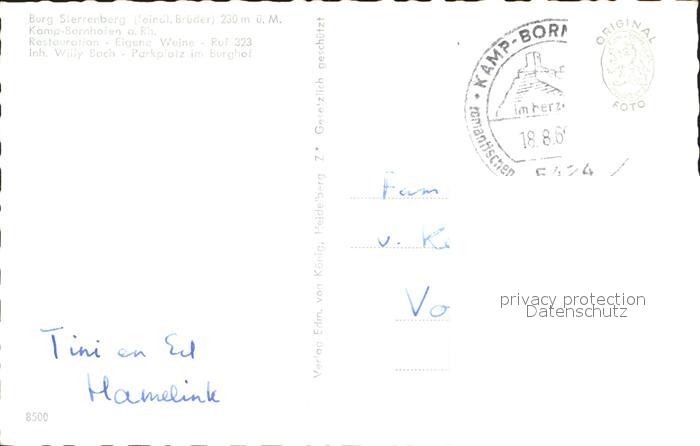 Burg Sterrenberg (feindl. Brüder) 230 m ü. M.
Kamp-Bornhofen a. Rh.
Restauration - Eigene Weine - Ruf 323
Inh. Willy Bach - Parkplatz im Burghof
Verlag Edm. von König, Heidelberg Z* Gesetzlich geschützt
KAMP-BORN
im Herz
18.8.6
romantischen
5424
ORIGINAL
FOTO
Fam
v. Ke
Vo
privacy protection
Datenschutz
Tini en Ed
Hamelink
8500